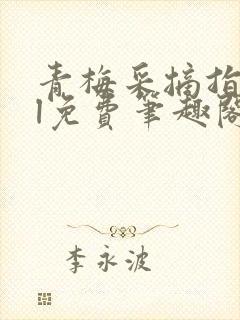 青梅采摘指
l免费笔趣阁
李永波